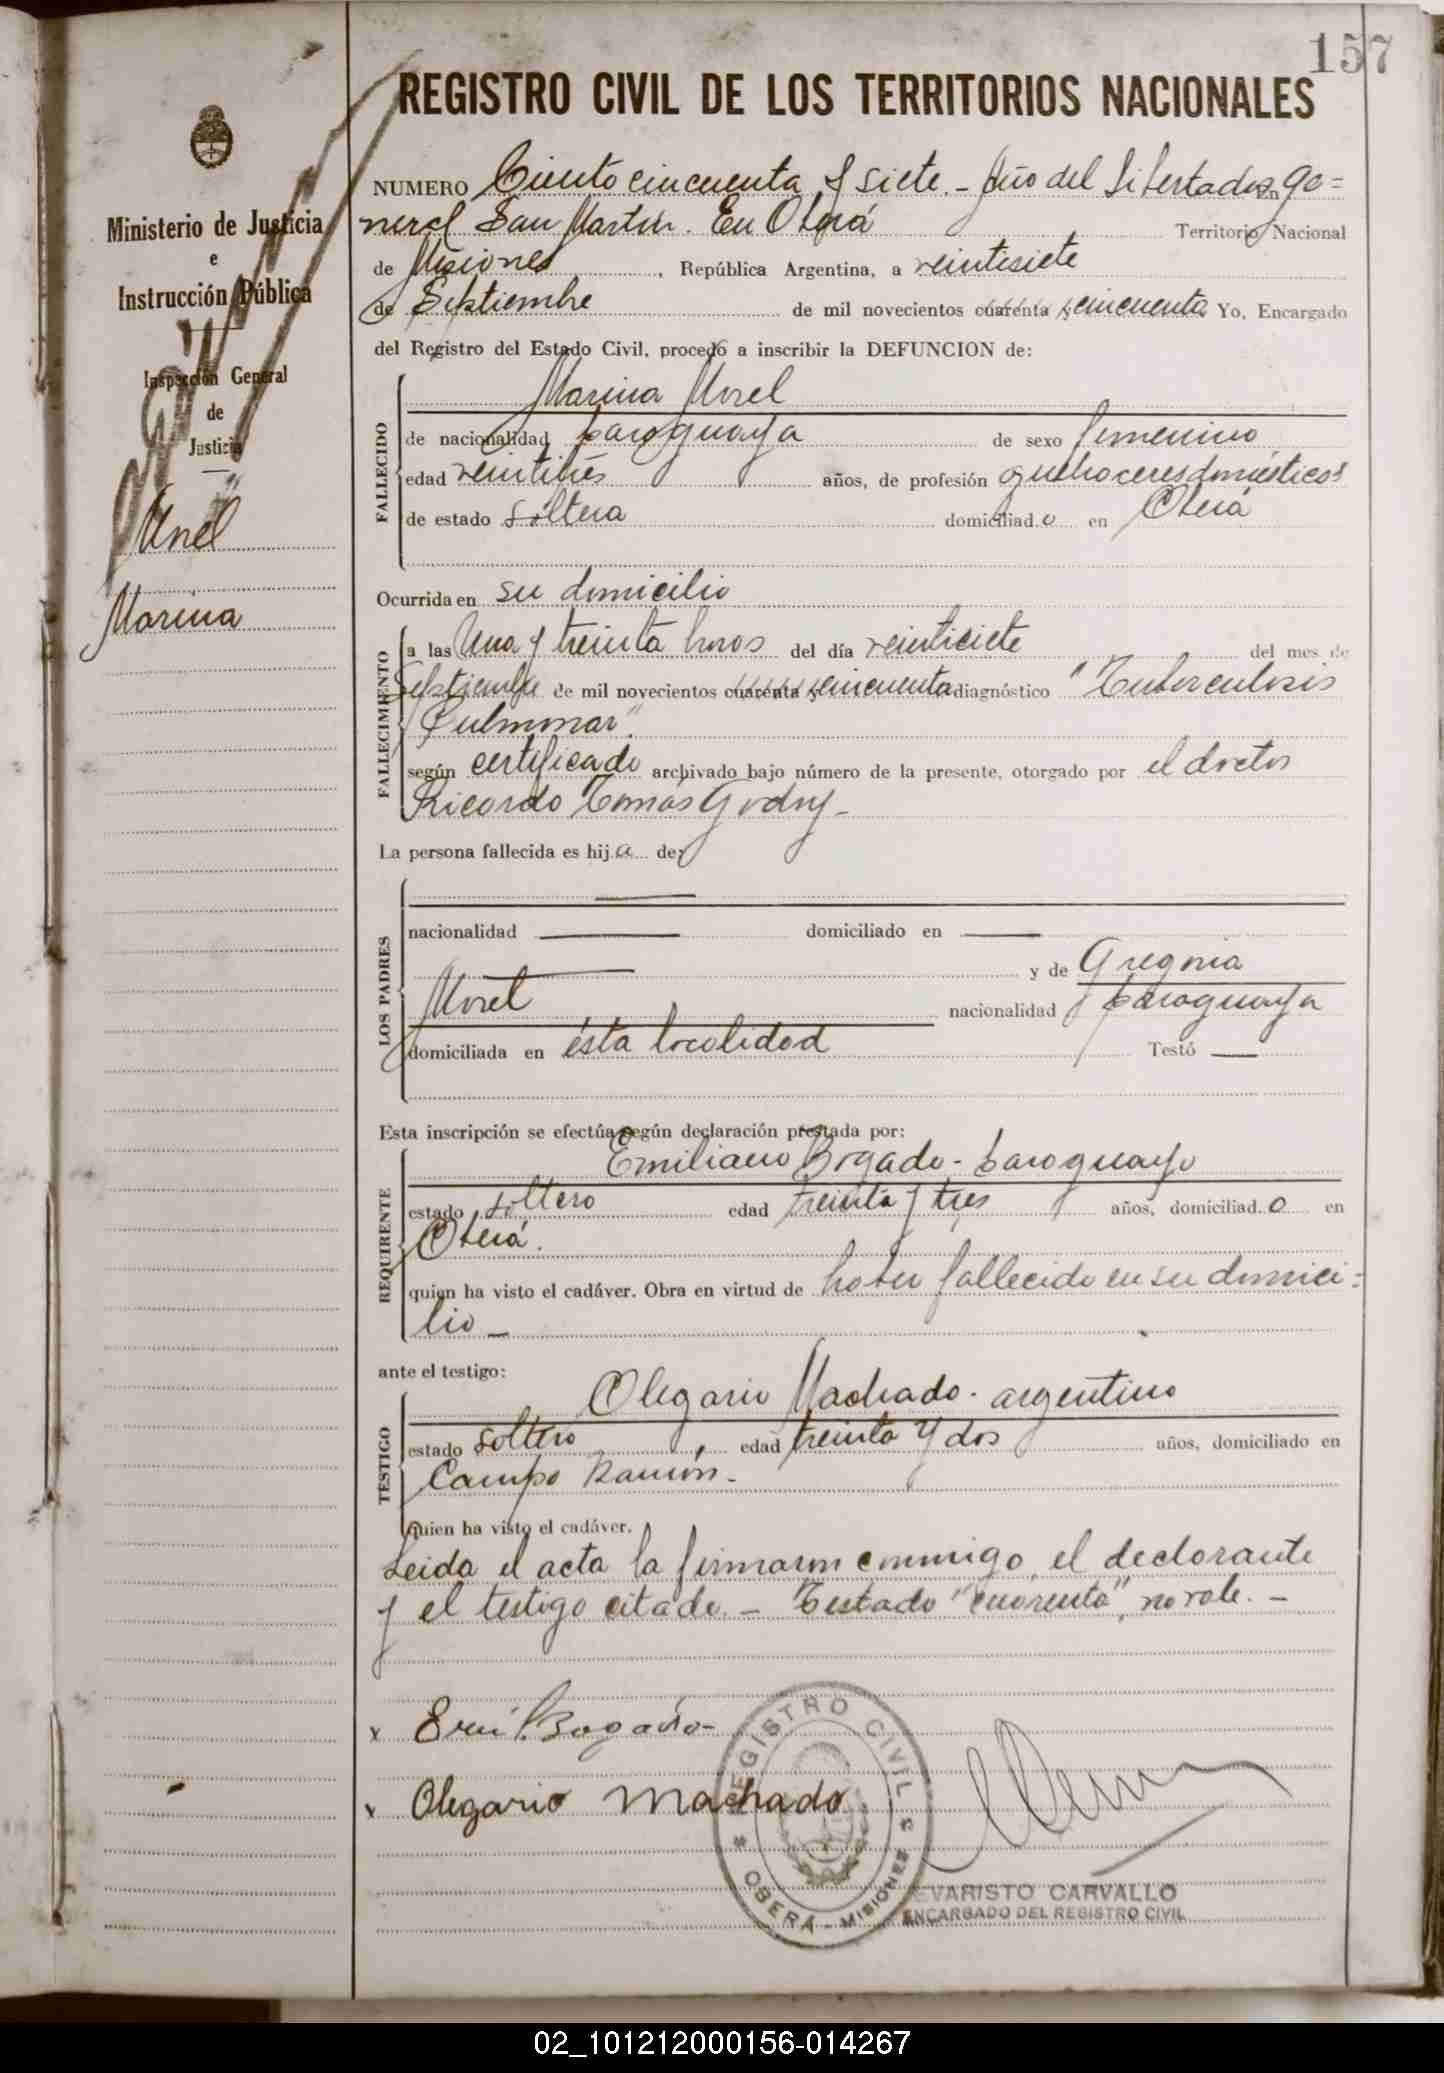 157
REGISTRO CIVIL DE LOS TERRITORIOS NACIONALES
Ministerio de Justicia
e
Instrucción Pública
Inspección General
de
Justicia
Morel
Marina
NUMERO Ciento cincuenta y siete.- Año del Libertador En ge=
neral San Martín. En Oberá Territorio Nacional
de Misiones, República Argentina, a veintisiete
de Septiembre de mil novecientos cuarenta y cincuenta Yo, Encargado
del Registro del Estado Civil, procedo a inscribir la DEFUNCION de:
FALLECIDO
Marina Morel
de nacionalidad paraguaya de sexo femenino
edad veintitrés años, de profesión quehaceres domésticos
de estado soltera domiciliad a en Oberá
Ocurrida en su domicilio
FALLECIMIENTO
a las Una y treinta horas del día veinticiete del mes de
Septiembre de mil novecientos cuarenta y cincuenta diagnóstico "Tuberculosis
Pulmonar".
según certificado archivado bajo número de la presente, otorgado por el doctor
Ricardo Tomás Godoy-
La persona fallecida es hij a de:
LOS PADRES
nacionalidad — domiciliado en —
— y de Gregoria
Morel nacionalidad paraguaya
domiciliada en ésta localidad Testó —
Esta inscripción se efectúa según declaración prestada por:
REQUIRENTE
Emiliano Bogado - paraguayo
estado soltero edad treinta y tres años, domiciliad o en
Oberá.
quien ha visto el cadáver. Obra en virtud de haber fallecido en su domici=
lio -
ante el testigo:
TESTIGO
Olegario Machado - argentino
estado soltero, edad treinta y dos años, domiciliado en
Campo Ramón.-
quien ha visto el cadáver.
Leida el acta la firmaron conmigo, el declarante
y el testigo citado.- Testado "cuarenta", no vale.-
x Emi. Bogado-
x Olegario Machado
REGISTRO CIVIL
OBERÁ - MISIONES
EVARISTO CARVALLO
ENCARGADO DEL REGISTRO CIVIL
02_101212000156-014267